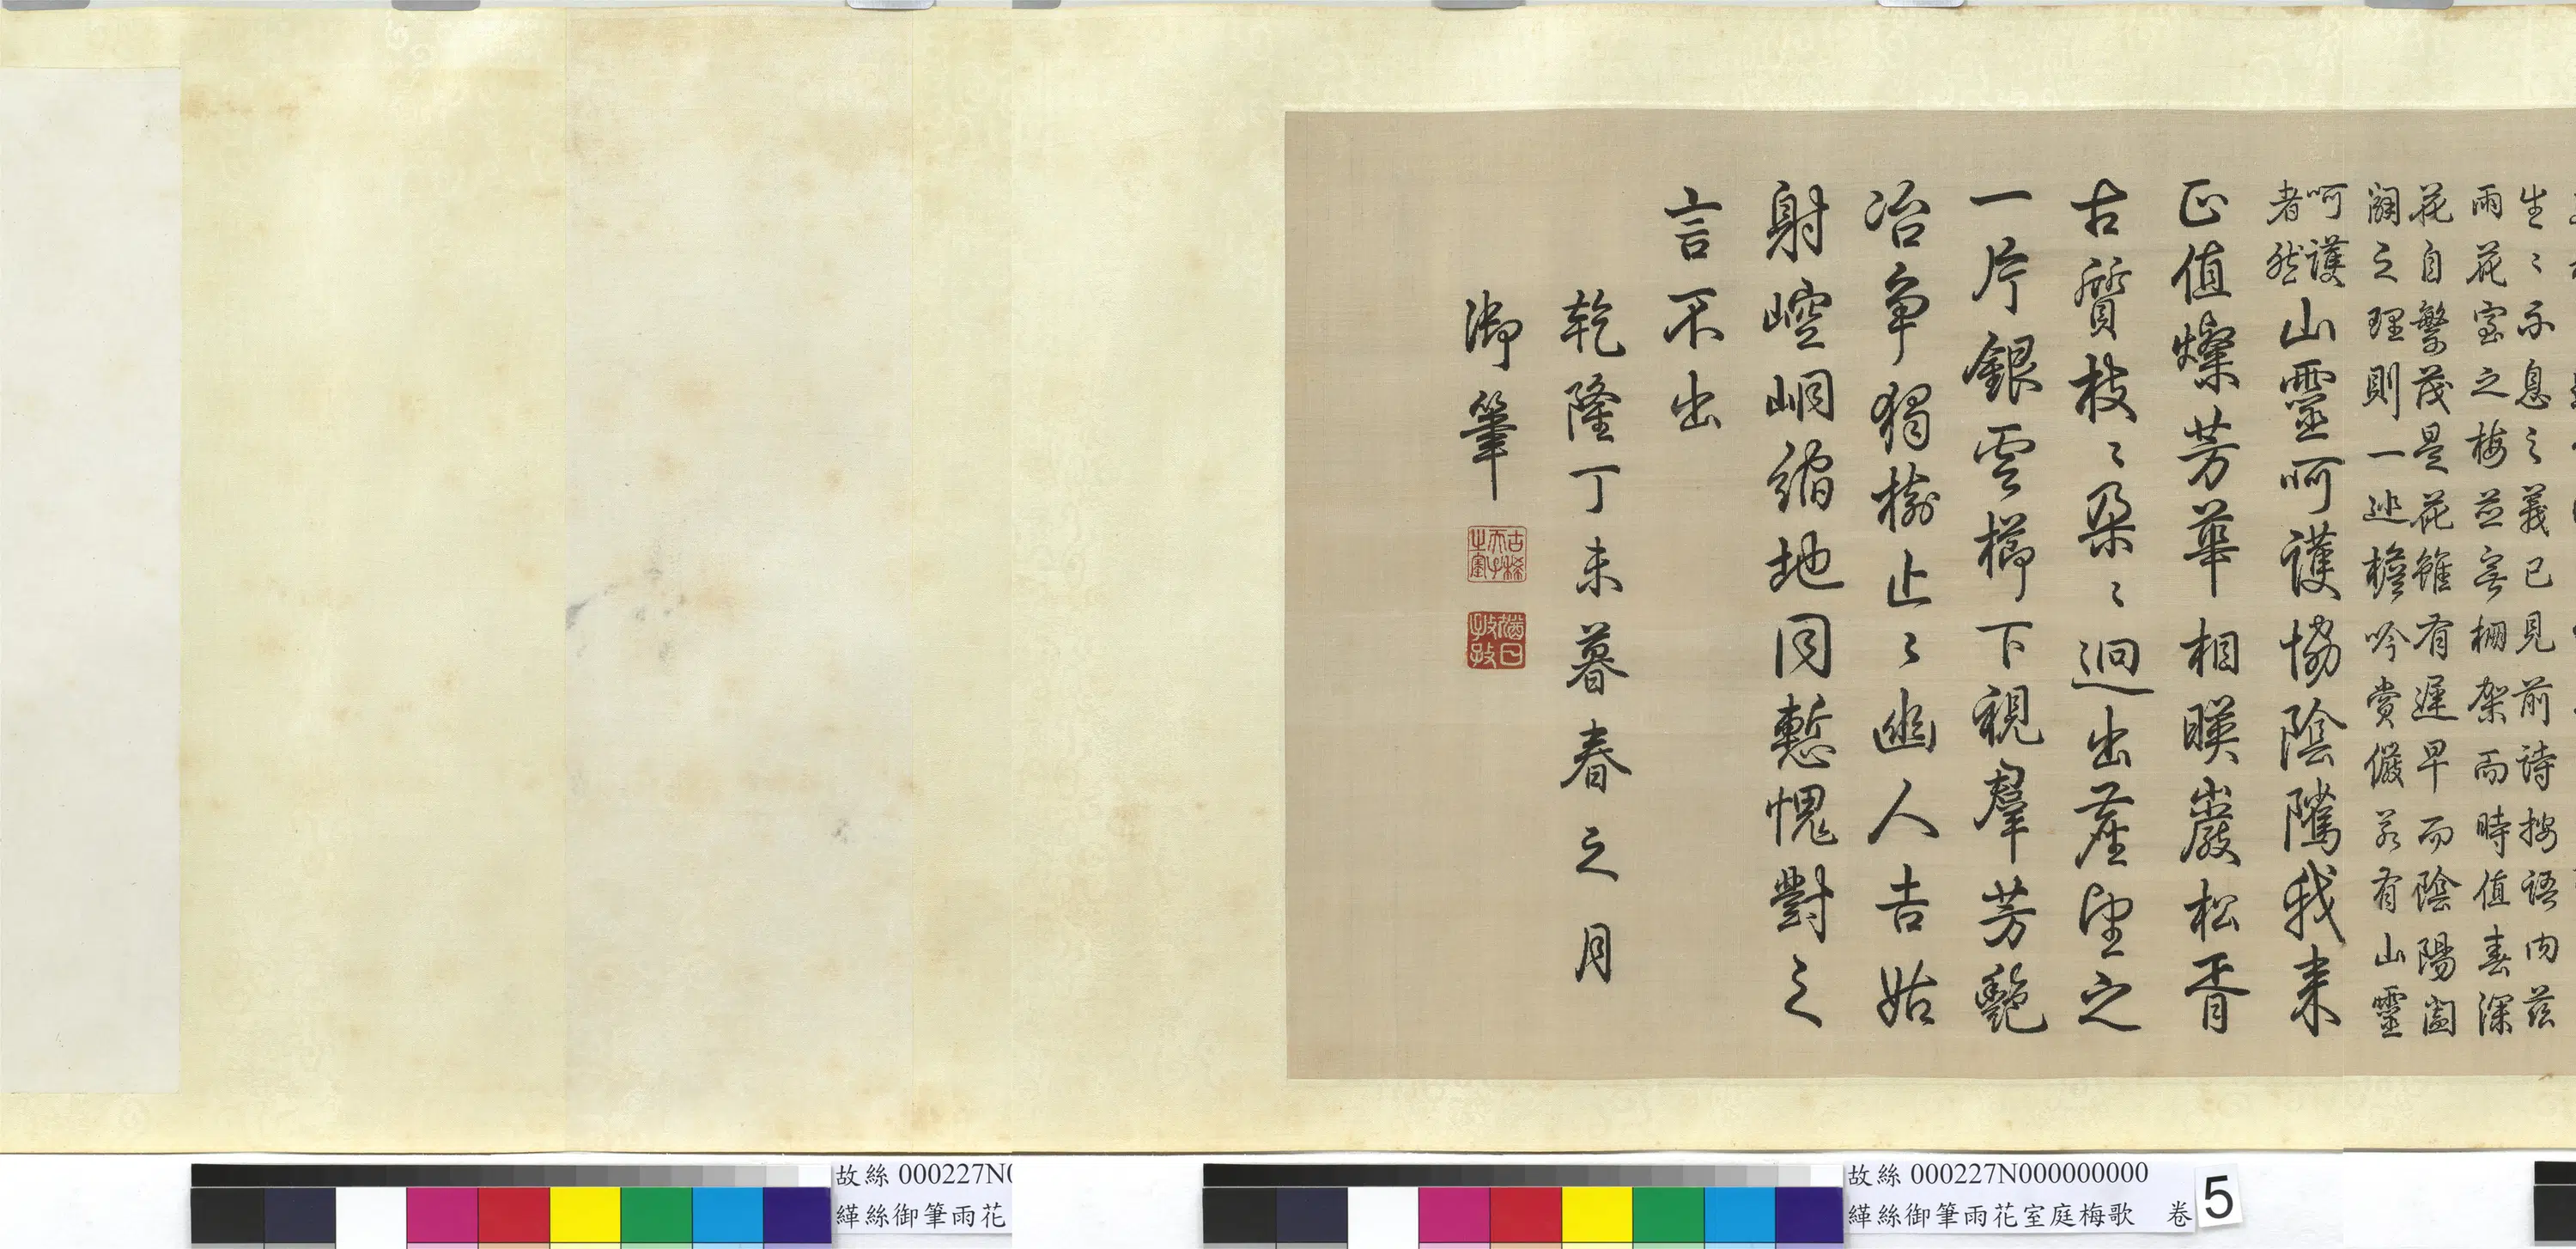 生〻不息之義已見前詩按語內茲
雨花室之梅並容棚架而時值春深
花自繁茂是花雖有遲早而陰陽闔
闢之理則一巡檐吟賞儼若有山靈
呵護
者然
山靈呵護協陰隲我來
正值燦芳華相暎巖松胥
古質枝〻朶〻迥出塵望之
一片銀雲櫛下視羣芳艶
冶爭獨樹止〻幽人吉姑
射崆峒縮地同慙愧對之
言不出
乾隆丁未暮春之月
御筆
古稀天子之寶
猶日孜孜
故絲 000227N0
緙絲御筆雨花
故絲 000227N000000000
緙絲御筆雨花室庭梅歌 卷
5